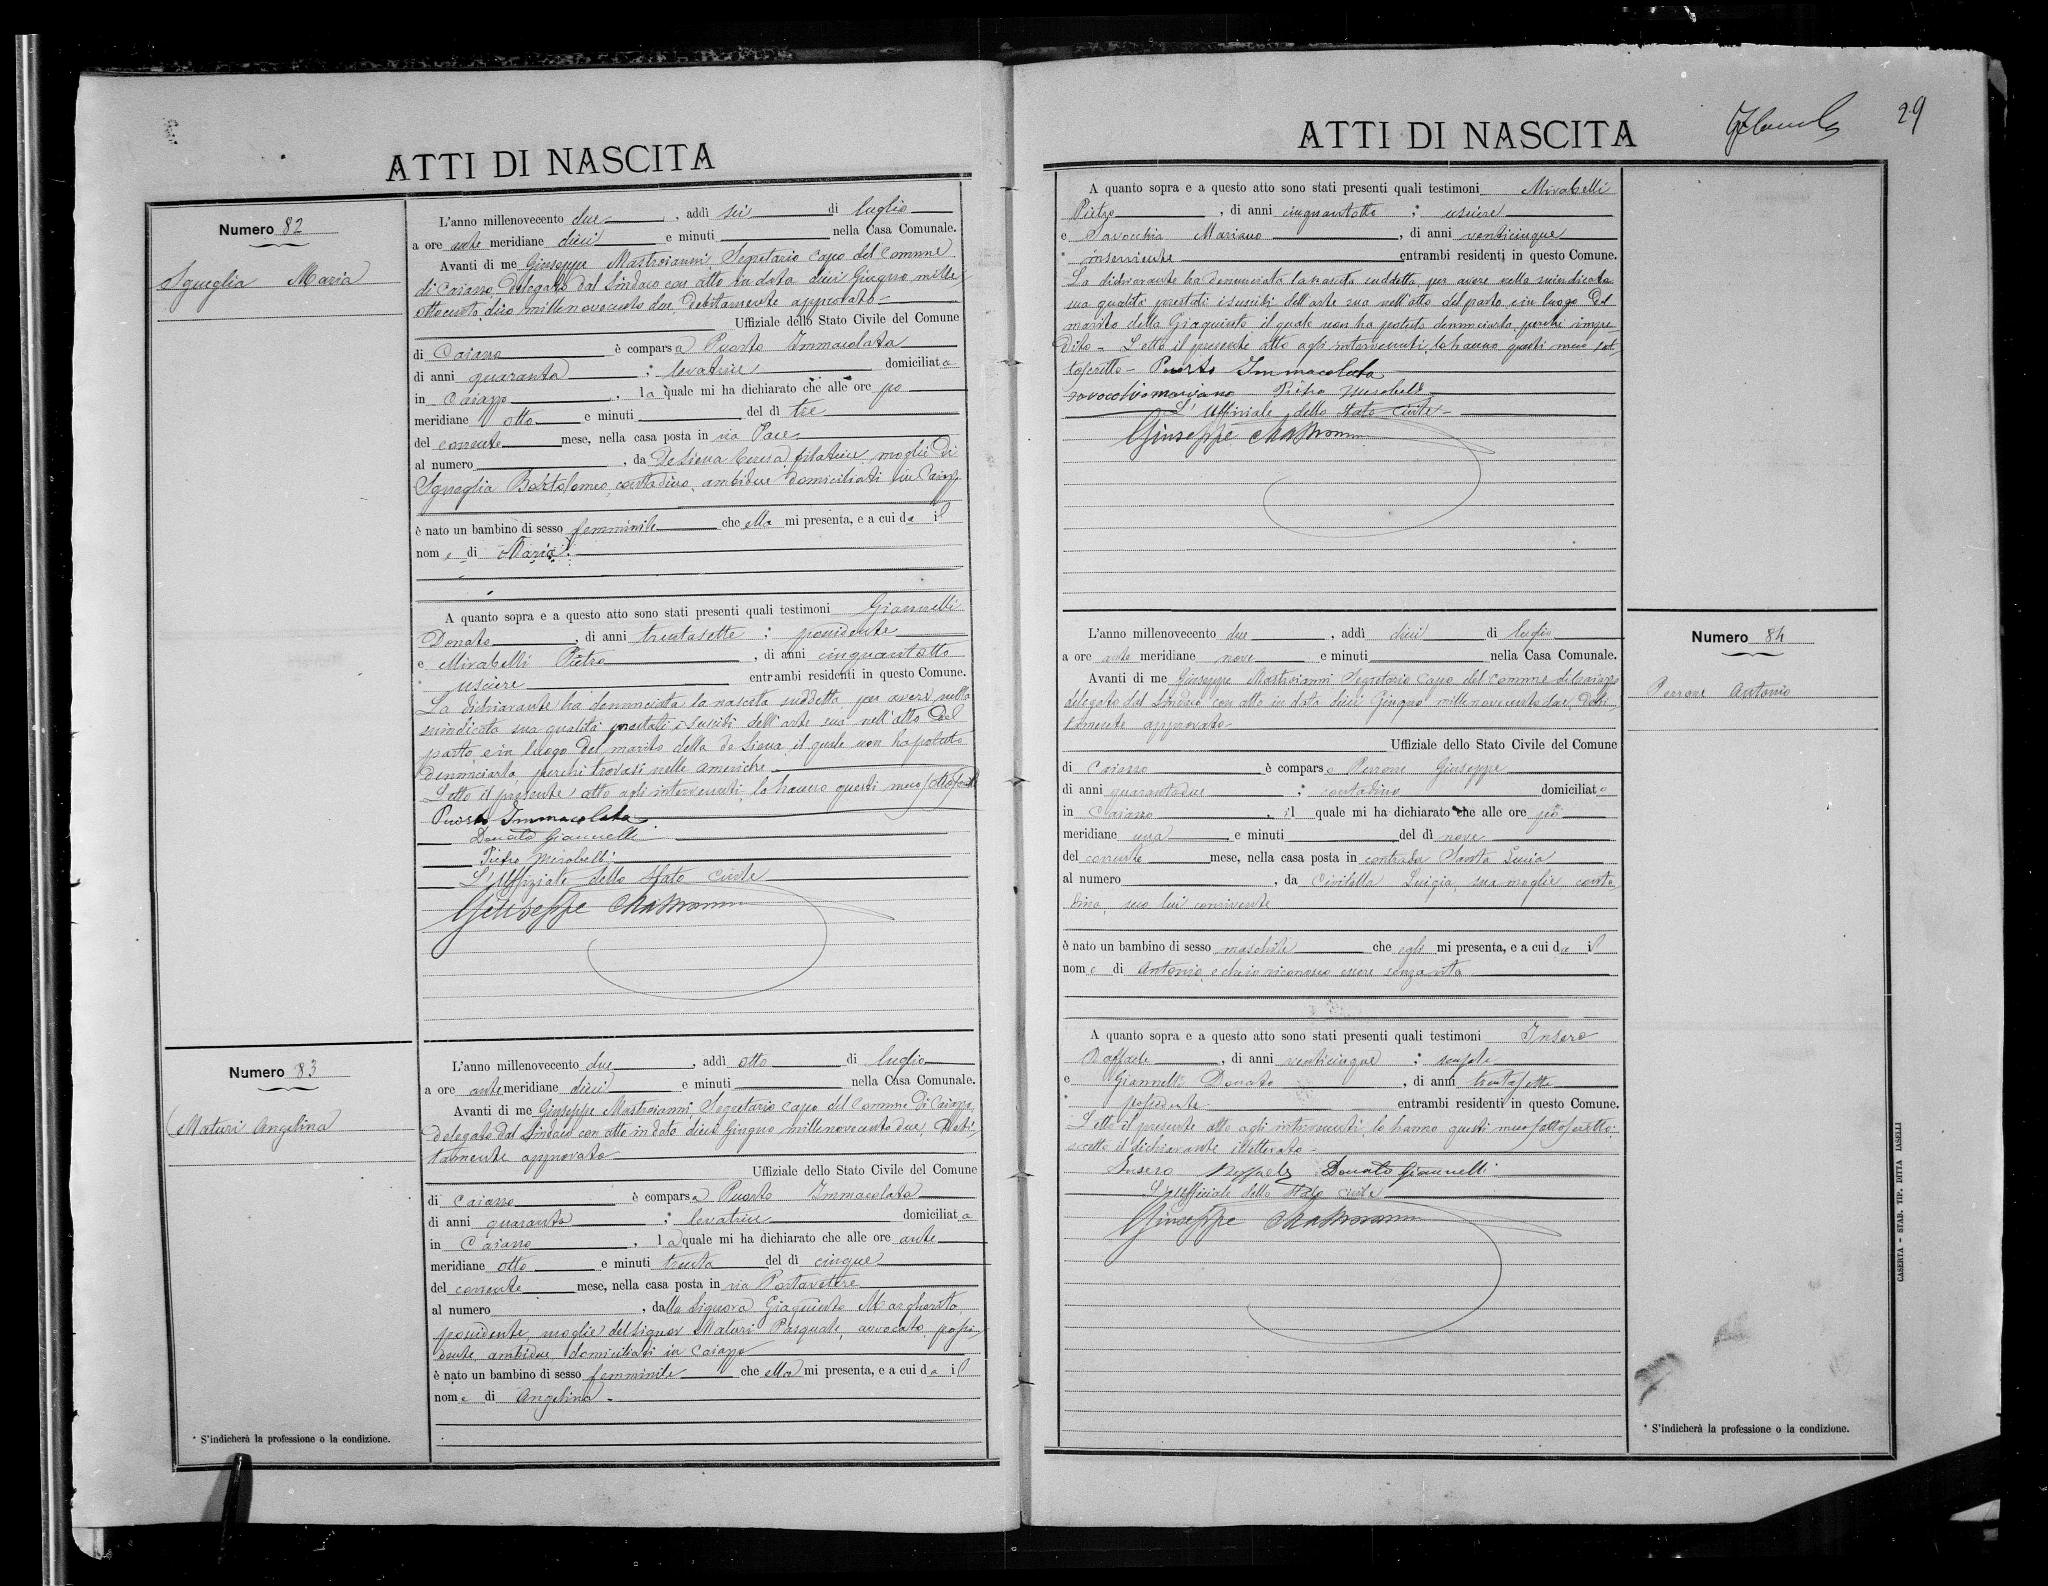 ATTI DI NASCITA
Numero 82
Squeglia Maria
L'anno millenovecento due, addì sei di luglio
a ore ante meridiane dieci e minuti nella Casa Comunale.
Avanti di me Giuseppe Mastroianni, Segretario capo del Comune
di Caiazzo, delegato dal Sindaco con atto in data dieci Giugno mille
ottocento, dico millenovecento due, debitamente approvato
Uffiziale dello Stato Civile del Comune
di Caiazzo è comparsa Puorto Immacolata
di anni quaranta; levatrice domiciliata
in Caiazzo, la quale mi ha dichiarato che alle ore po
meridiane otto e minuti del dì tre
del corrente mese, nella casa posta in via Pace
al numero , da De Sieva Teresa filatrice, moglie di
Squeglia Bartolomeo, contadino, ambidue domiciliati in Caiazzo
è nato un bambino di sesso femminile che ella mi presenta, e a cui da il
nome di Maria.
A quanto sopra e a questo atto sono stati presenti quali testimoni Giannelli
Donato, di anni trentasette; possidente
e Mirabelli Pietro, di anni cinquantotto
usciere entrambi residenti in questo Comune.
La dichiarante ha denunciata la nascita suddetta, per avere nella
suindicata sua qualità prestati i sussidi dell'arte sua nell'atto del
parto, e in luogo del marito della de Sieva, il quale non ha potuto
denunciarla perchè trovasi nelle americhe
Letto il presente atto agli intervenuti, lo hanno questi meco sottoscritto
Puorto Immacolata
Donato Giannelli
Pietro Mirabelli
L'Uffiziale dello Stato Civile
Giuseppe Mastroianni
Numero 83
Maturi Angelina
L'anno millenovecento due, addì otto di luglio
a ore antemeridiane dieci e minuti nella Casa Comunale.
Avanti di me Giuseppe Mastroianni, Segretario capo del Comune di Caiazzo,
delegato dal Sindaco con atto in data dieci Giugno millenovecento due, debi-
tamente approvato
Uffiziale dello Stato Civile del Comune
di Caiazzo è comparsa Puorto Immacolata
di anni quaranta; levatrice domiciliata
in Caiazzo, la quale mi ha dichiarato che alle ore ante
meridiane otto e minuti trenta del dì cinque
del corrente mese, nella casa posta in via Portavetere
al numero , dalla Signora Giaquinto Margherita,
possidente, moglie del Signor Maturi Pasquale, avvocato, possi-
dente, ambidue domiciliati in Caiazzo
è nato un bambino di sesso femminile che ella mi presenta, e a cui da il
nome di Angelina.
* S'indicherà la professione o la condizione.
29
ATTI DI NASCITA
A quanto sopra e a questo atto sono stati presenti quali testimoni Mirabelli
Pietro, di anni cinquantotto; usciere
e Savocchia Mariano, di anni venticinque
* inserviente entrambi residenti in questo Comune.
La dichiarante ha denunciata la nascita suddetta, per avere nella suindicata
sua qualità prestati i sussidi dell'arte sua nell'atto del parto, e in luogo del
marito della Giaquinto il quale non ha potuto denunciarla, perchè impe-
dito - Letto il presente atto agli intervenuti, lo hanno questi meco sot
toscritto - Puorto Immacolata
savocchia mariano Pietro Mirabelli
L'Uffiziale dello Stato Civile
Giuseppe Mastroianni
Numero 84
Perrone Antonio
L'anno millenovecento due, addì dieci di luglio
a ore ante meridiane nove e minuti nella Casa Comunale.
Avanti di me Giuseppe Mastroianni Segretario Capo del Comune di Caiazzo
delegato dal Sindaco con atto in data dieci Giugno millenovecento due, debi-
tamente approvato
Uffiziale dello Stato Civile del Comune
di Caiazzo è comparso Perrone Giuseppe
di anni quarantadue; contadino domiciliato
in Caiazzo, il quale mi ha dichiarato che alle ore po
meridiane una e minuti del dì nove
del corrente mese, nella casa posta in contrada Santa Lucia
al numero , da Civitella Luigia, sua moglie conta
dina, seco lui convivente
è nato un bambino di sesso maschile che egli mi presenta, e a cui da il
nome di Antonio, e che io riconosco essere senza vita
A quanto sopra e a questo atto sono stati presenti quali testimoni Insero
Raffaele, di anni venticinque; sensale
e Giannelli Donato, di anni trentasette
* possidente entrambi residenti in questo Comune.
Letto il presente atto agli intervenuti, lo hanno questi meco sottoscritto,
eccetto il dichiarante illetterato -
Insero Raffaele Donato Giannelli
L'Uffiziale dello Stato Civile
Giuseppe Mastroianni
* S'indicherà la professione o la condizione.
CASERTA - STAB. TIP. DITTA IASELLI